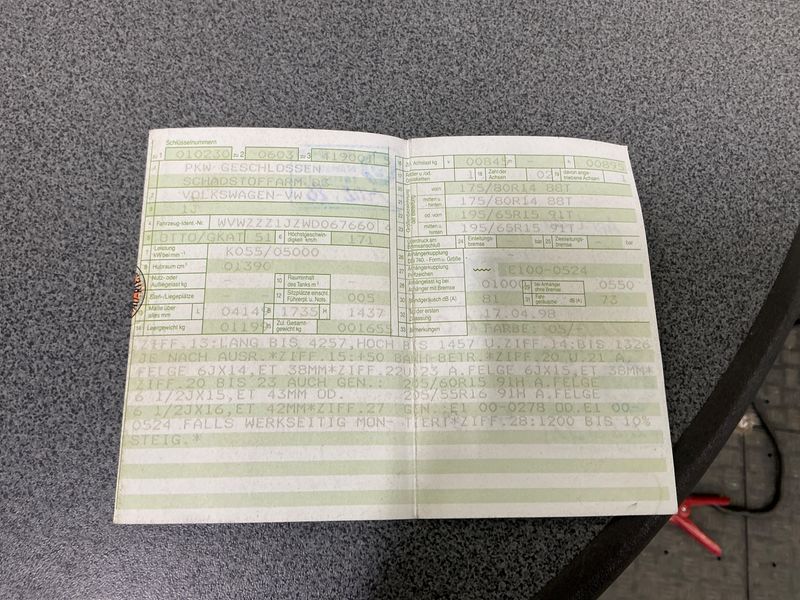 Schlüsselnummern
zu 1 010230 zu 2 0603 zu 3
PKW GESCHLOSSEN
SCHADSTOFFARM
2 VOLKSWAGEN-VW
3 1J
4 Fahrzeug-Ident.-Nr. WVWZZZ1JZWD067660
5 OTTO/GKAT 51 6 Höchstgeschwindigkeit km/h 171
7 Leistung kW bei min⁻¹ K055/05000
8 Hubraum cm³ 01390
9 Nutz- oder Aufliegelast kg - 10 Rauminhalt des Tanks m³ -
11 Steh-/Liegeplätze - 12 Sitzplätze einschl. Führerpl. u. Nots. 005
13 Maße über alles mm L 0414 B 1735 H 1437
14 Leergewicht kg 15 Zul. Gesamtgewicht kg 001655
16 Zul. Achslast kg v 00845 m - h
17 Räder u./od. Gleisketten 1 18 Zahl der Achsen 02 19 davon angetriebene Achsen 1
20 vorn 175/80R14 88T
21 mitten u. hinten 175/80R14 88T
22 od. vorn 195/65R15 91T
23 mitten u. hinten 195/65R15 91T
Überdruck am Bremsanschluß 24 Einleitungsbremse - bar 25 Zweileitungsbremse - bar
26 Anhängerkupplung DIN 740.. - Form u. Größe
27 Anhängerkupplung Prüfzeichen E100-0524
28 Anhängelast kg bei Anhänger mit Bremse 01000 29 bei Anhänger ohne Bremse 0550
30 Standgeräusch dB (A) 81 31 Fahrgeräusche dB (A) 73
32 Tag der ersten Zulassung 17.04.98
33 Bemerkungen FARBE: 05/
ZIFF.13:LANG BIS 4257,HOCH BIS 1457 U.ZIFF.14:BIS 1326
JE NACH AUSR.*ZIFF.15:+50 B.ANH-BETR.*ZIFF.20 U.21 A.
FELGE 6JX14,ET 38MM*ZIFF.22U.23 A.FELGE 6JX15,ET 38MM*
ZIFF.20 BIS 23 AUCH GEN.: 205/60R15 91H A.FELGE
6 1/2JX15,ET 43MM OD. 205/55R16 91H A.FELGE
6 1/2JX16,ET 42MM*ZIFF.27 GEN.:E1 00-0278 OD.E1 00-
0524 FALLS WERKSEITIG MONTIERT*ZIFF.28:1200 BIS 10%
STEIG.*